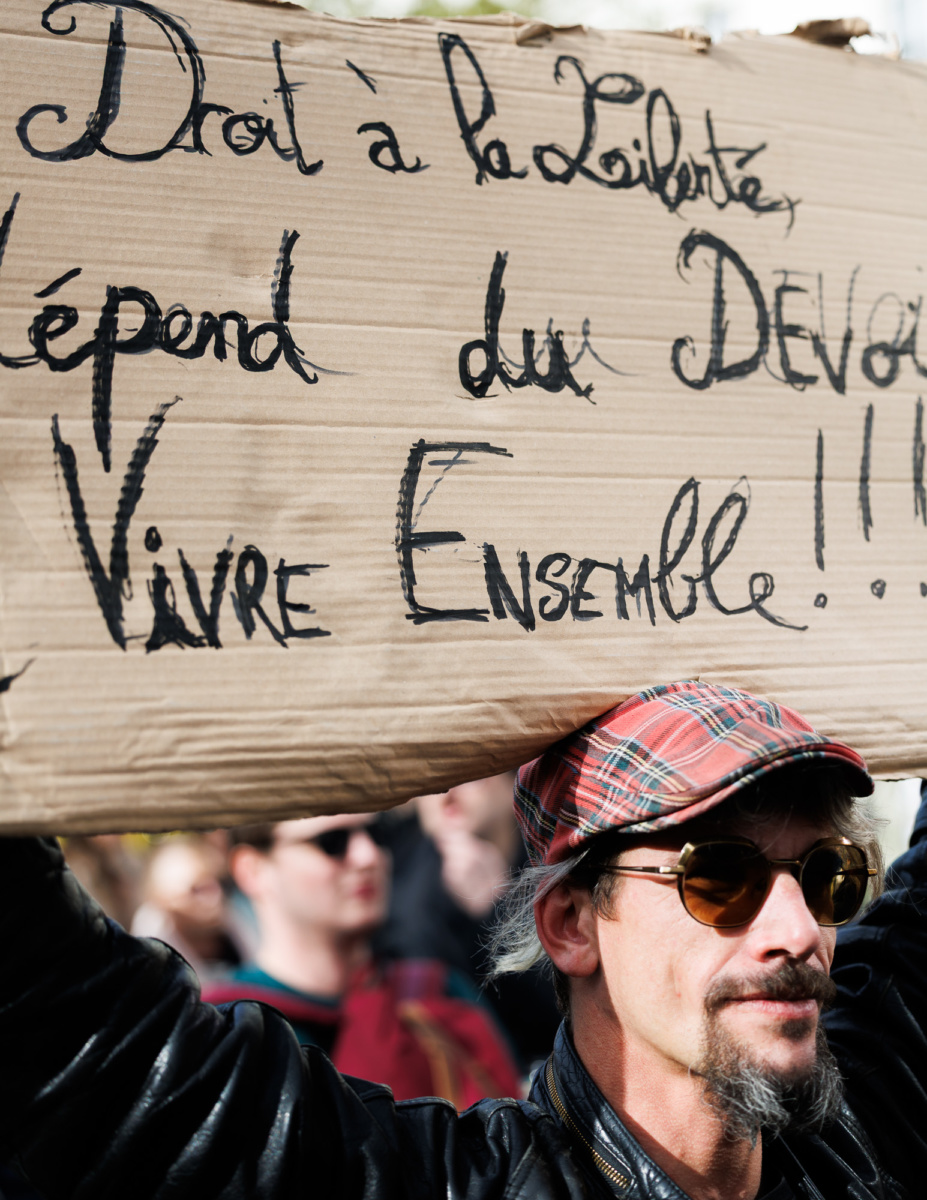 Droit à la Liberté,
dépend du DEVoi
VivRE ENSEMble !!!